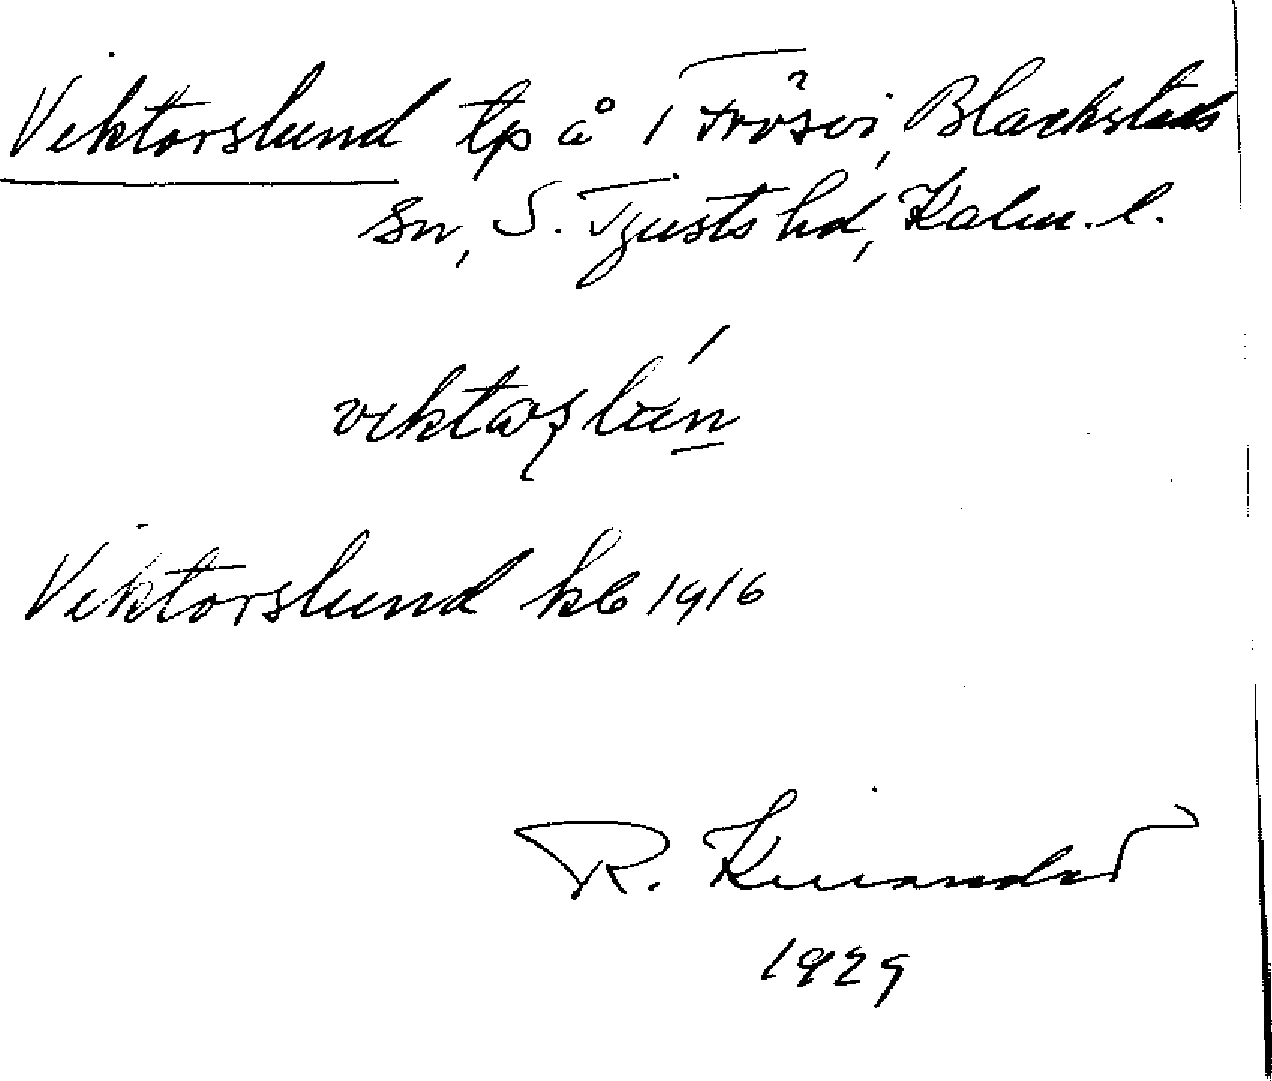 Viktorslund tp å Frösvi, Blackstads
sn, S. Tjusts hd, Kalm. l.
viktorslún
Viktorslund kb 1916
R. Kinander
1929